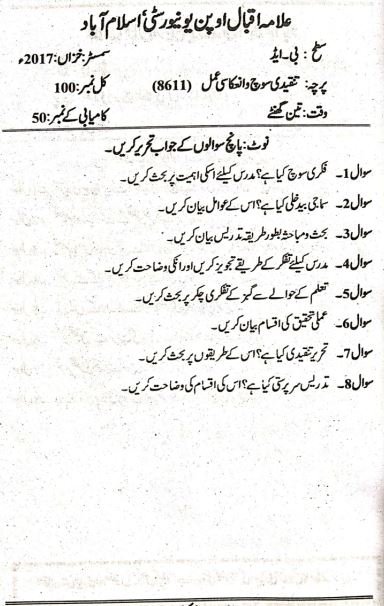 علامہ اقبال اوپن یونیورسٹی، اسلام آباد
سطح: بی۔ایڈ سمسٹر: خزاں: 2017ء
پرچہ: تنقیدی سوچ و انعکاسی عمل (8611) کل نمبر: 100
وقت: تین گھنٹے کامیابی کے نمبر: 50
نوٹ: پانچ سوالوں کے جواب تحریر کریں۔
سوال1۔ فکری سوچ کیا ہے؟ مدرس کیلئے اسکی اہمیت پر بحث کریں۔
سوال2۔ سماجی بیدخلی کیا ہے؟ اس کے عوامل بیان کریں۔
سوال3۔ بحث و مباحثہ بطور طریقہ تدریس بیان کریں۔
سوال4۔ مدرس کیلئے تفکر کے طریقے تجویز کریں اور انکی وضاحت کریں۔
سوال5۔ تعلم کے حوالے سے گبز کے تفکری چکر پر بحث کریں۔
سوال6۔ عملی تحقیق کی اقسام بیان کریں۔
سوال7۔ تحریر تنقیدی کیا ہے؟ اس کے طریقوں پر بحث کریں۔
سوال8۔ تدریس سرپرستی کیا ہے؟ اس کی اقسام کی وضاحت کریں۔